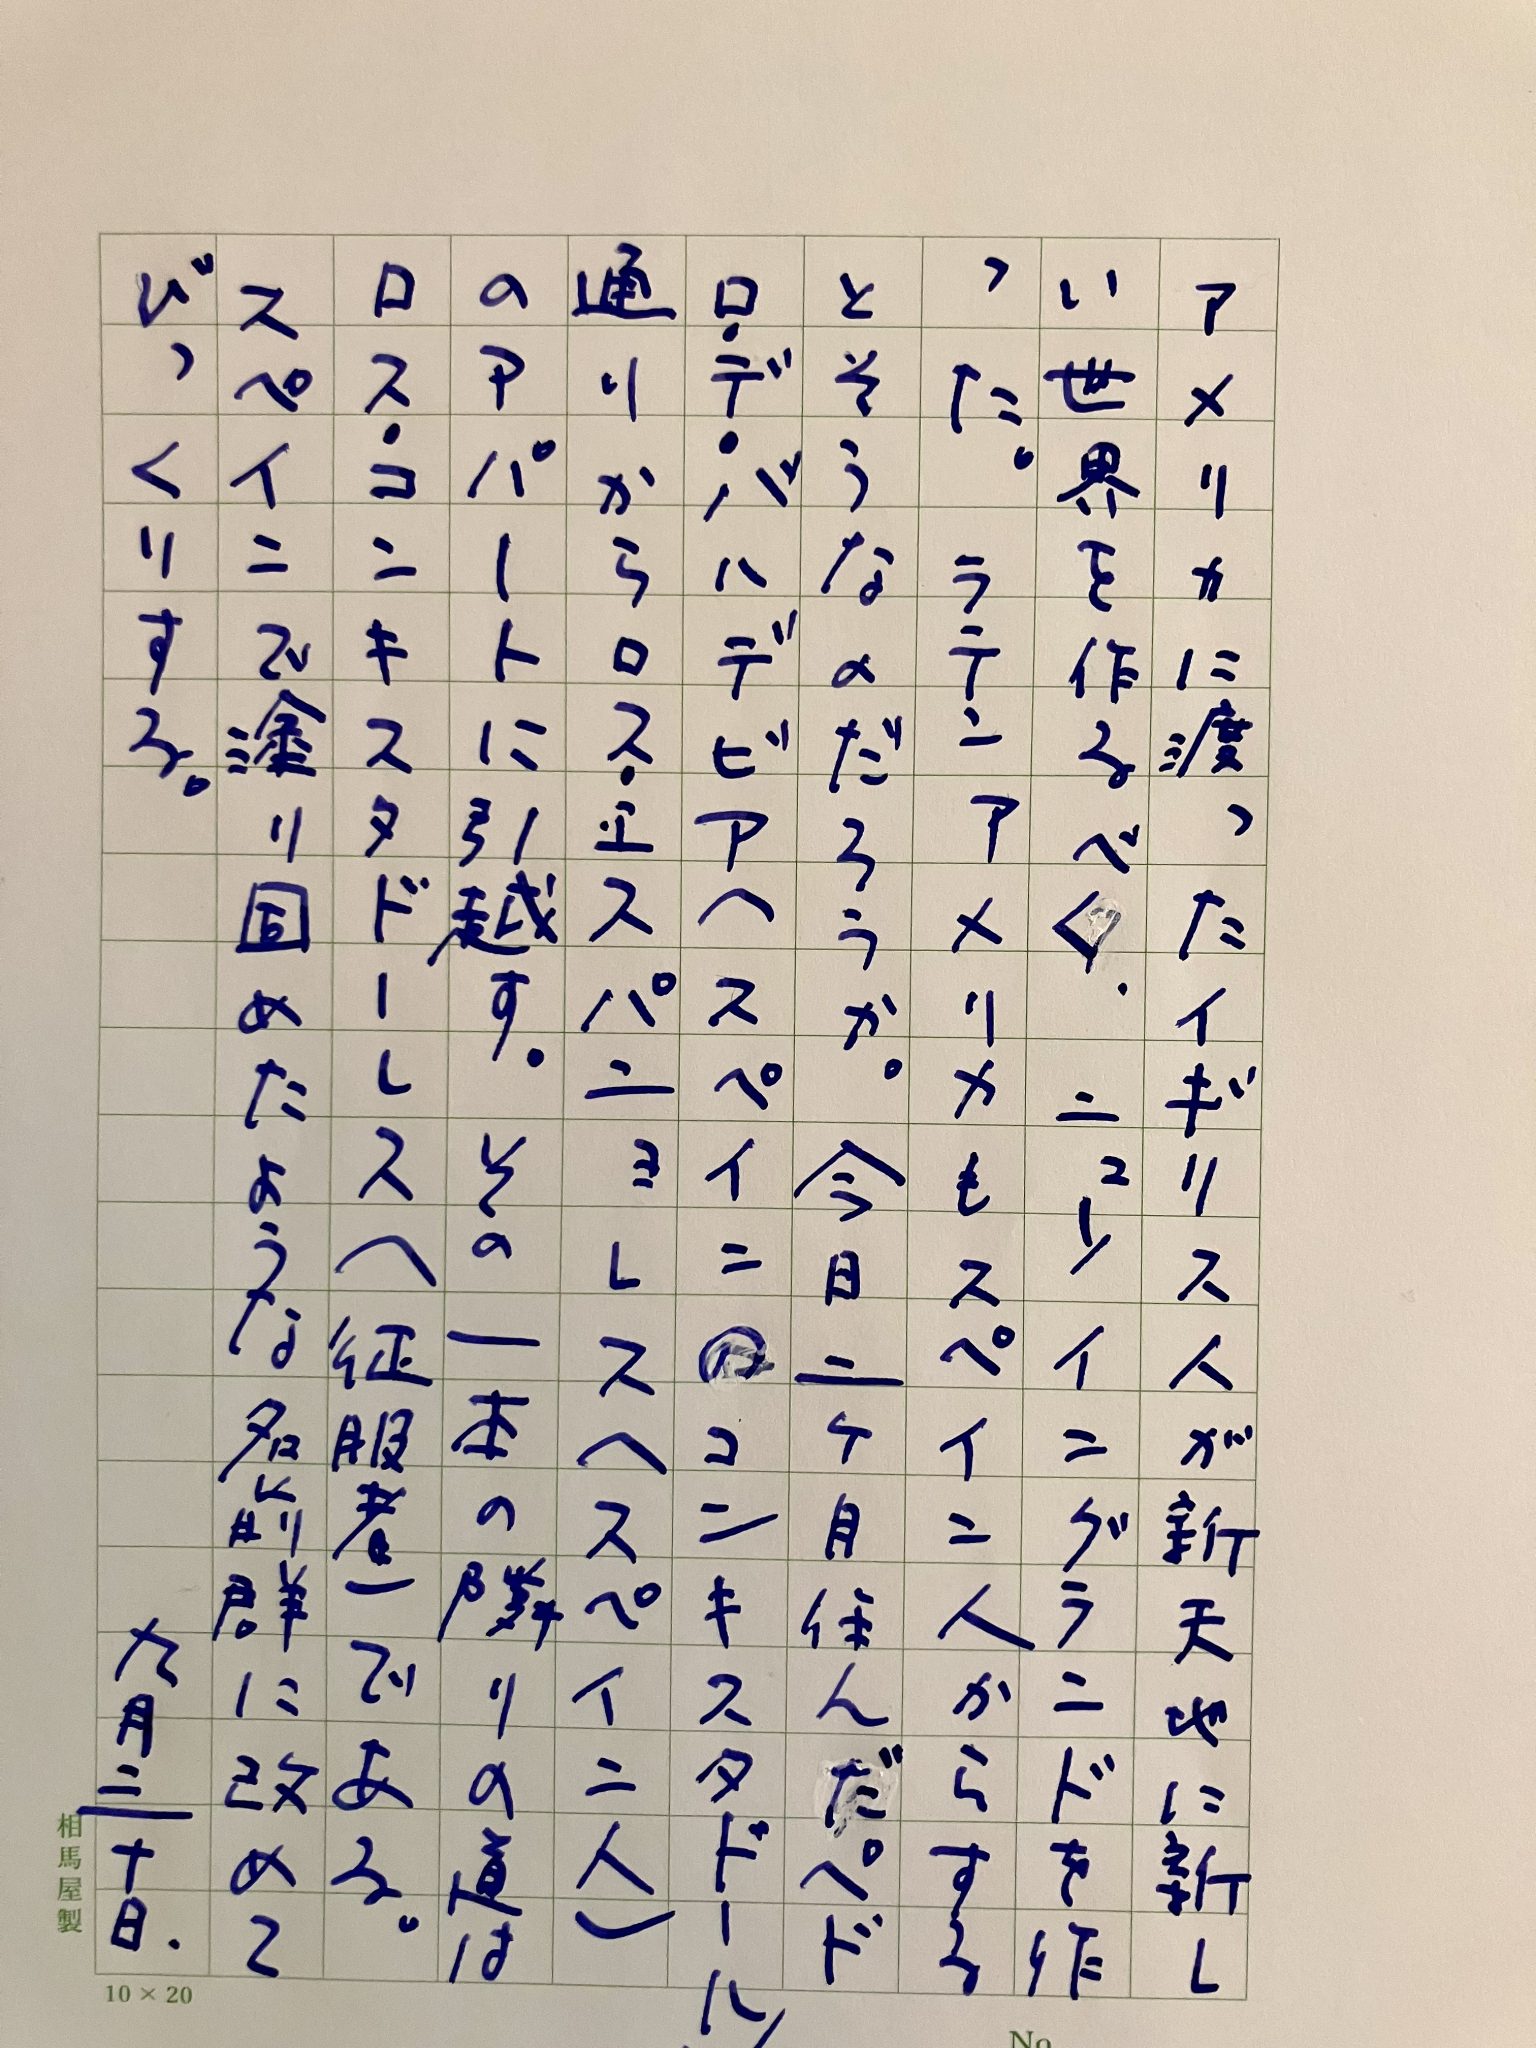 アメリカに渡ったイギリス人が新天地に新し
い世界を作るべく、ニューイングランドを作
った。ラテンアメリカもスペイン人からする
とそうなのだろうが。今日二ケ月住んだペド
ロ・デ・バルデビアヘスペインのコンキスタドール
通りからロス・エスパニョレス（スペイン人）
のアパートに引越す。その一本の隣りの道は
ロス・コンキスタドーレス（征服者）である。
スペインで塗り固めたような名前群に改めて
びっくりする。
九月二十日.
相馬屋製
10 × 20
No